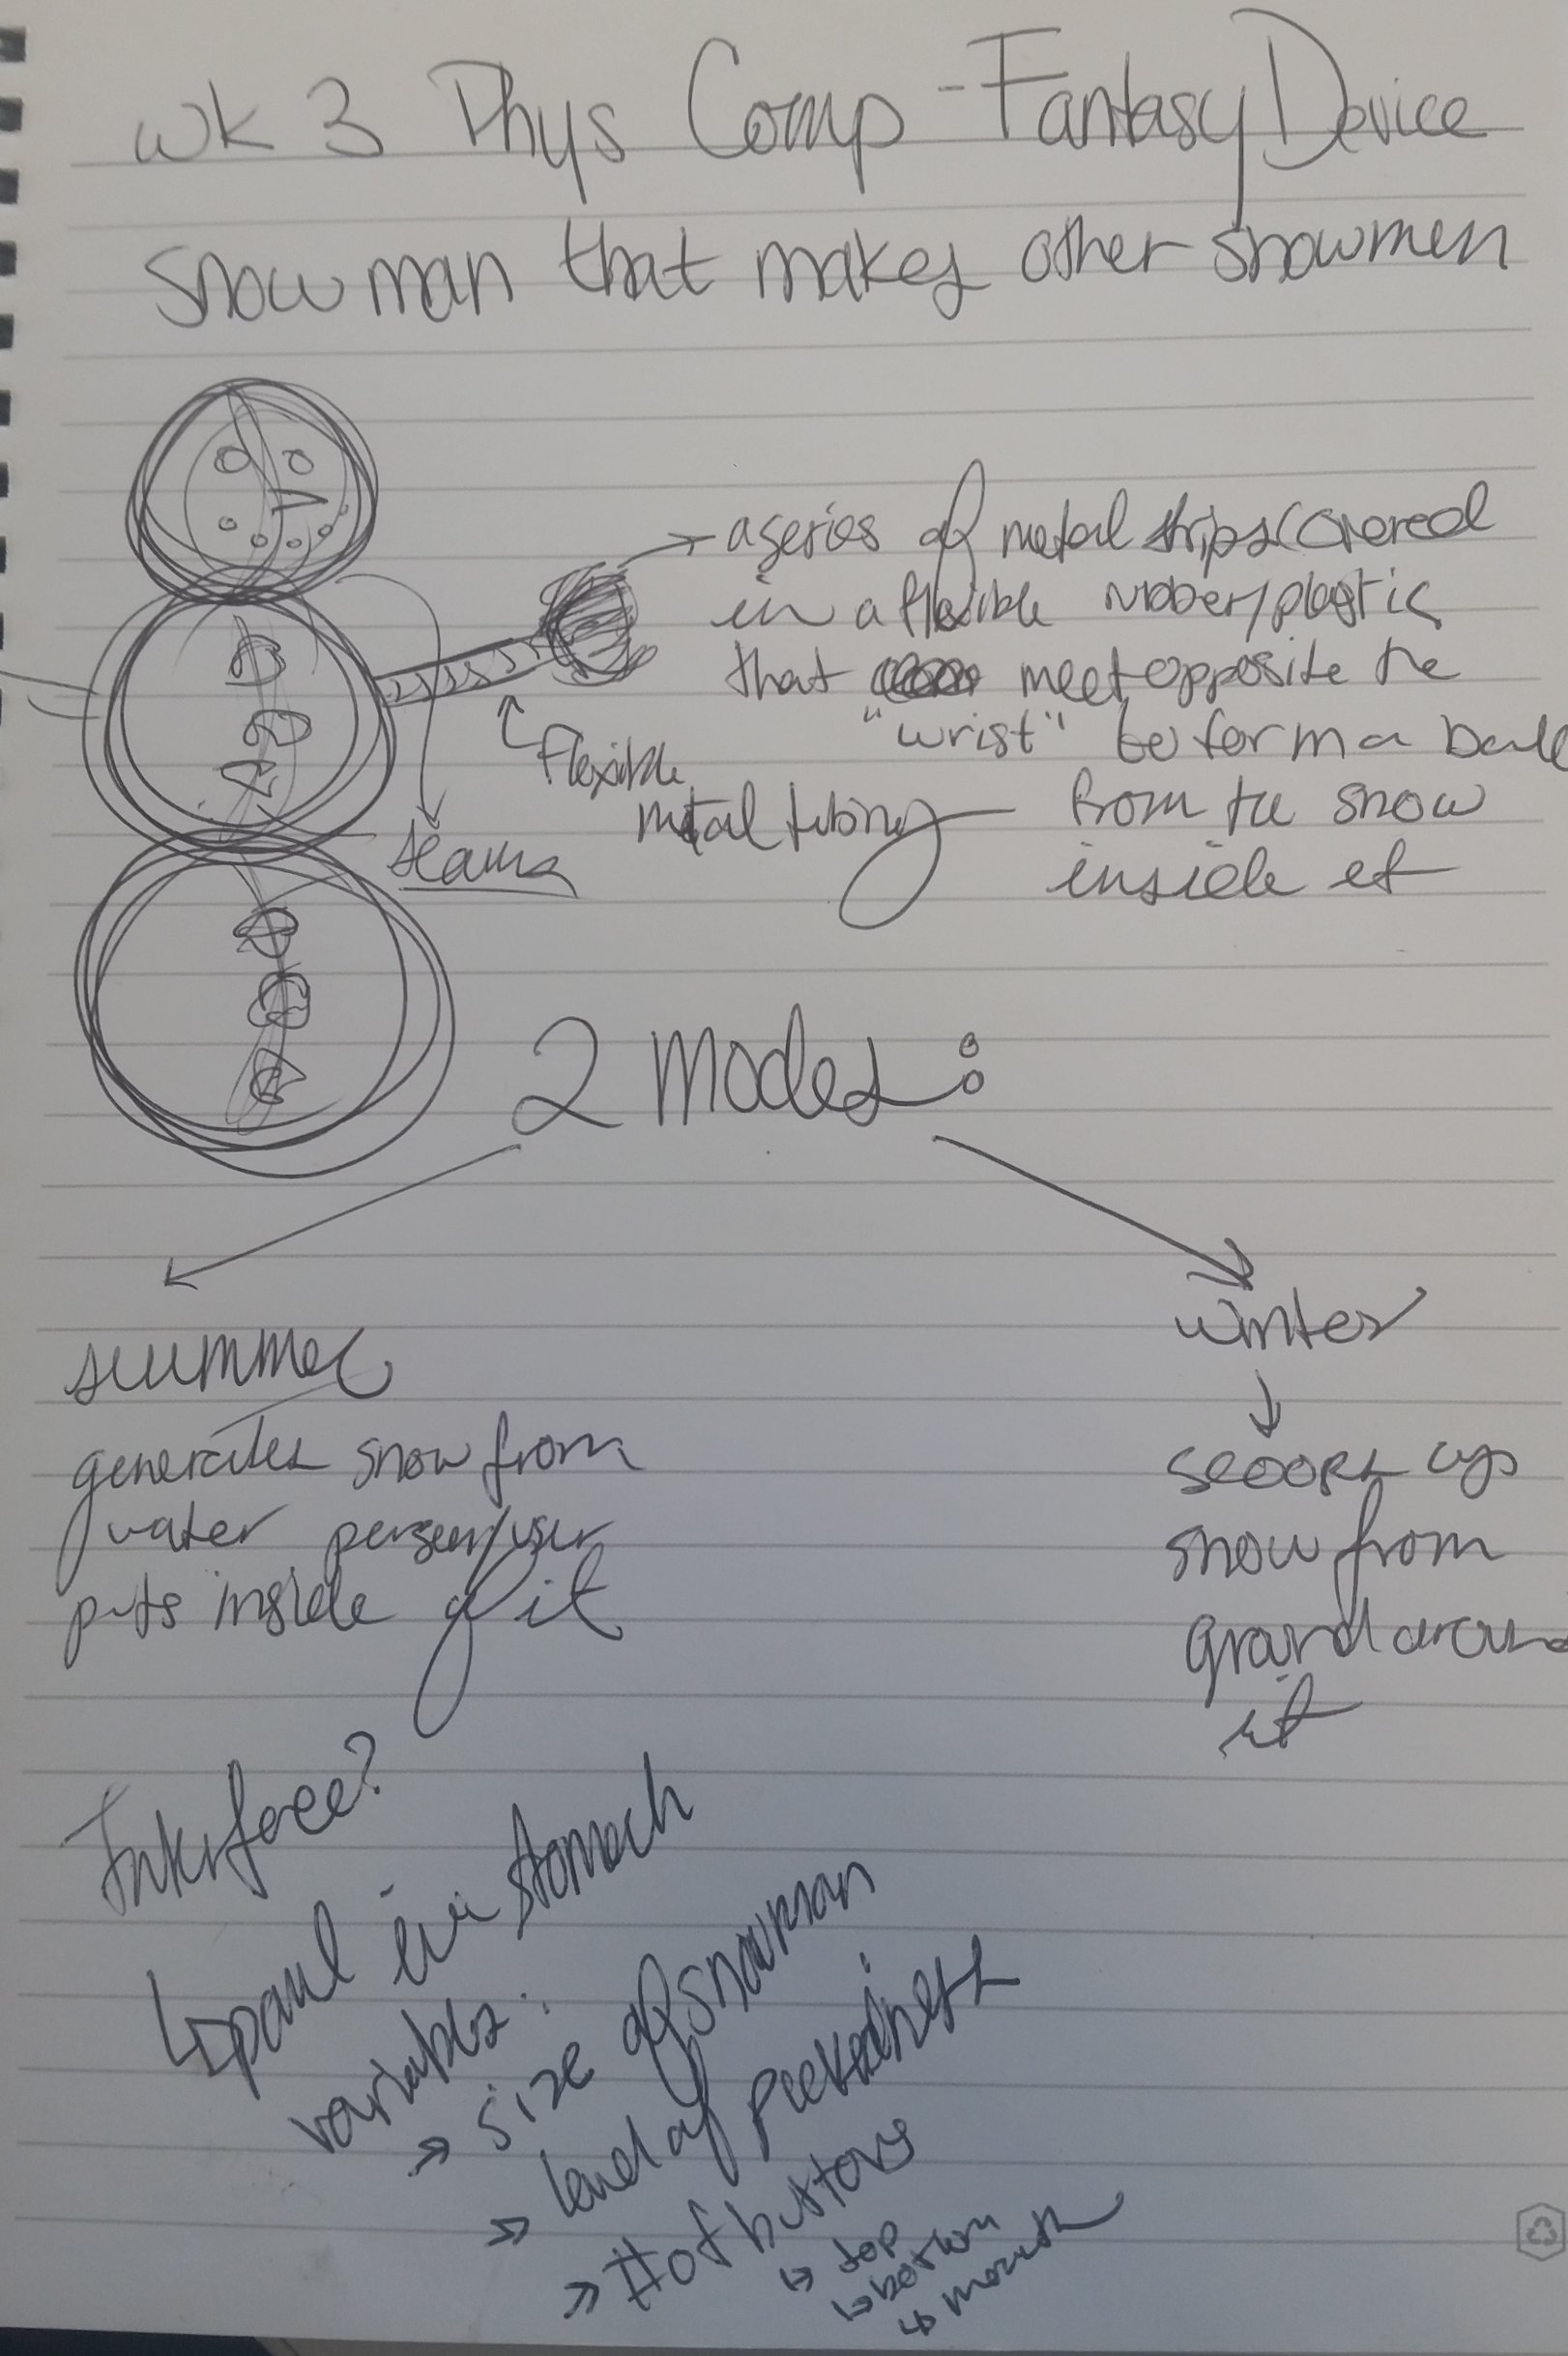 wk 3 Phys Comp - Fantasy Device
Snowman that makes other snowmen
a series of metal strips covered
in a flexible rubber/plastic
that meet opposite the
"wrist" to form a ball
from the snow
inside it
flexible
metal tubing
seams
2 modes:
summer
generates snow from
water person/user
puts inside of it
winter
scoops up
snow from
ground around
it
Interface?
panel in stomach
variables:
size of snowman
level of packedness
# of buttons
top
bottom
mouth